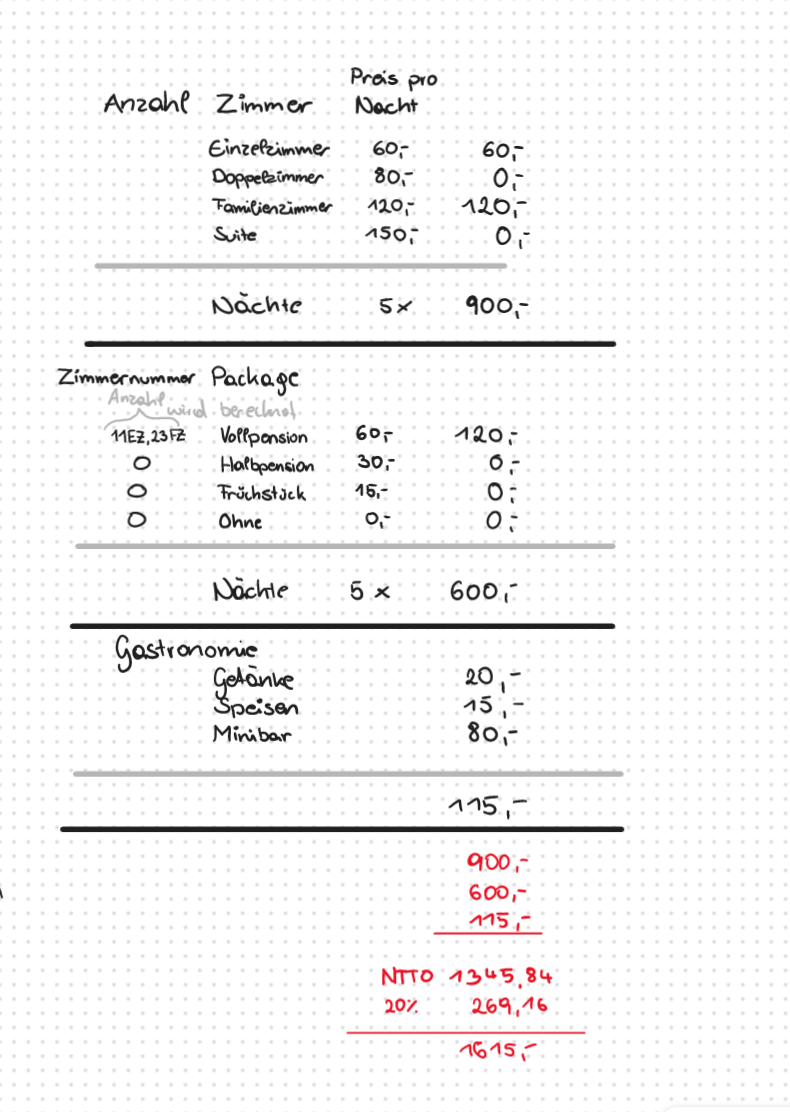 Preis pro
Anzahl Zimmer Nacht
Einzelzimmer 60,- 60,-
Doppelzimmer 80,- 0,-
Familienzimmer 120,- 120,-
Suite 150,- 0,-
Nächte 5x 900,-
Zimmernummer Package
Anzahl wird berechnet
11EZ, 23FZ Vollpension 60,- 120,-
0 Halbpension 30,- 0,-
0 Früchstück 15,- 0,-
0 Ohne 0,- 0,-
Nächte 5x 600,-
Gastronomie
Getänke 20,-
Speisen 15,-
Minibar 80,-
115,-
900,-
600,-
115,-
NTTO 1345,84
20% 269,16
1615,-